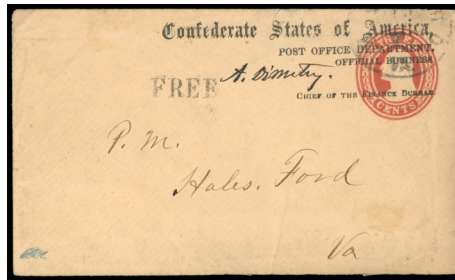 Confederate States of America,
POST OFFICE DEPARTMENT,
OFFICIAL BUSINESS
A. Dimitry.
FREE
CHIEF OF THE FINANCE BUREAU.
CENTS
VA
P. M.
Hales. Ford
Va